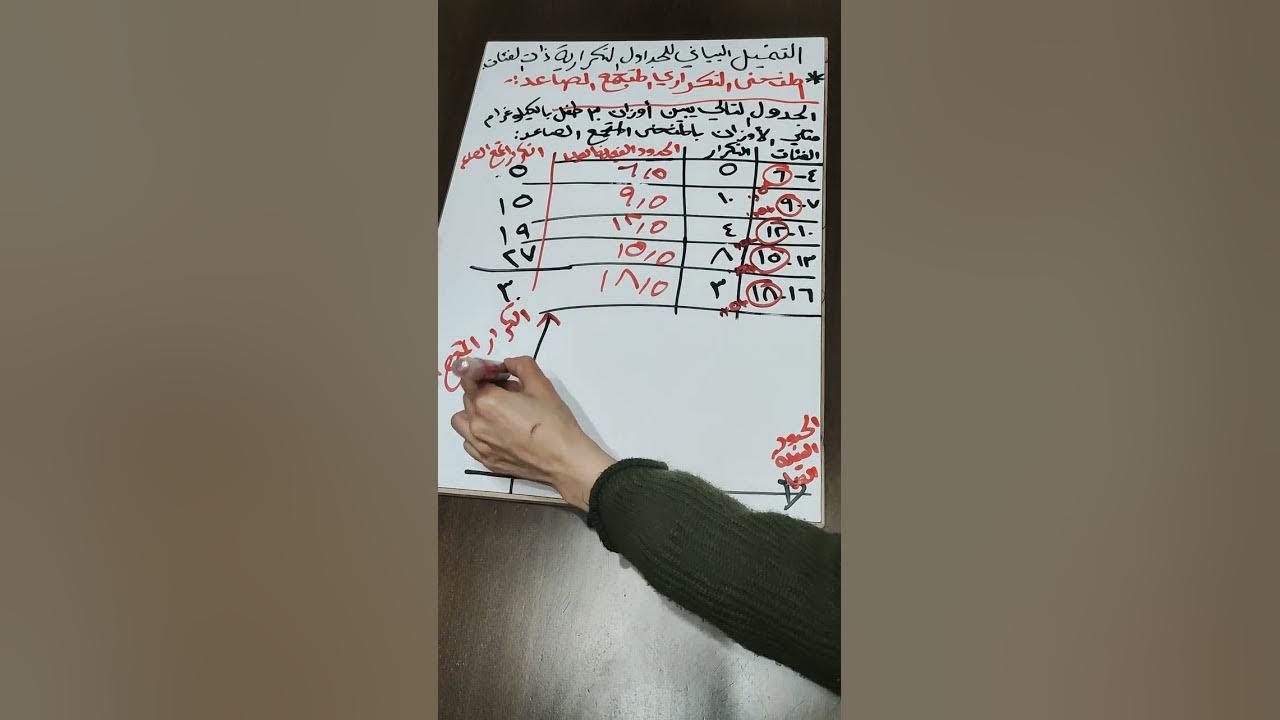 التمثيل البياني للجداول التكرارية ذات الفئات:
* المنحنى التكراري المتجمع الصاعد:-
الجدول التالي يبين أوزان ٣٠ طفل بالكيلوغرام
مثلي الأوزان بالمنحنى المتجمع الصاعد:
الفئات التكرار الحدود الفعلية العليا التكرار المتجمع الصاعد
٤-٦ ٥ ٦,٥ ٥
٧-٩ ١٠ ٩,٥ ١٥
١٠-١٢ ٤ ١٢,٥ ١٩
١٣-١٥ ٨ ١٥,٥ ٢٧
١٦-١٨ ٣ ١٨,٥ ٣٠
التكرار المتجمع
الحدود
الفعلية
العليا